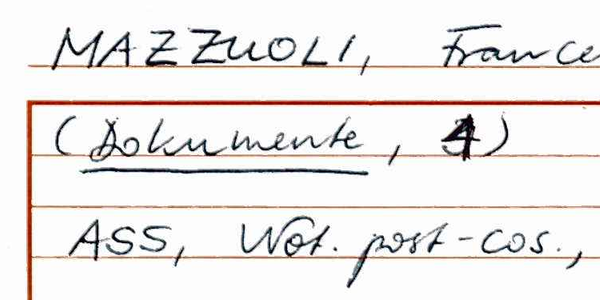 MAZZUOLI, France
(Dokumente, 4)
ASS, Not. post-cos.,